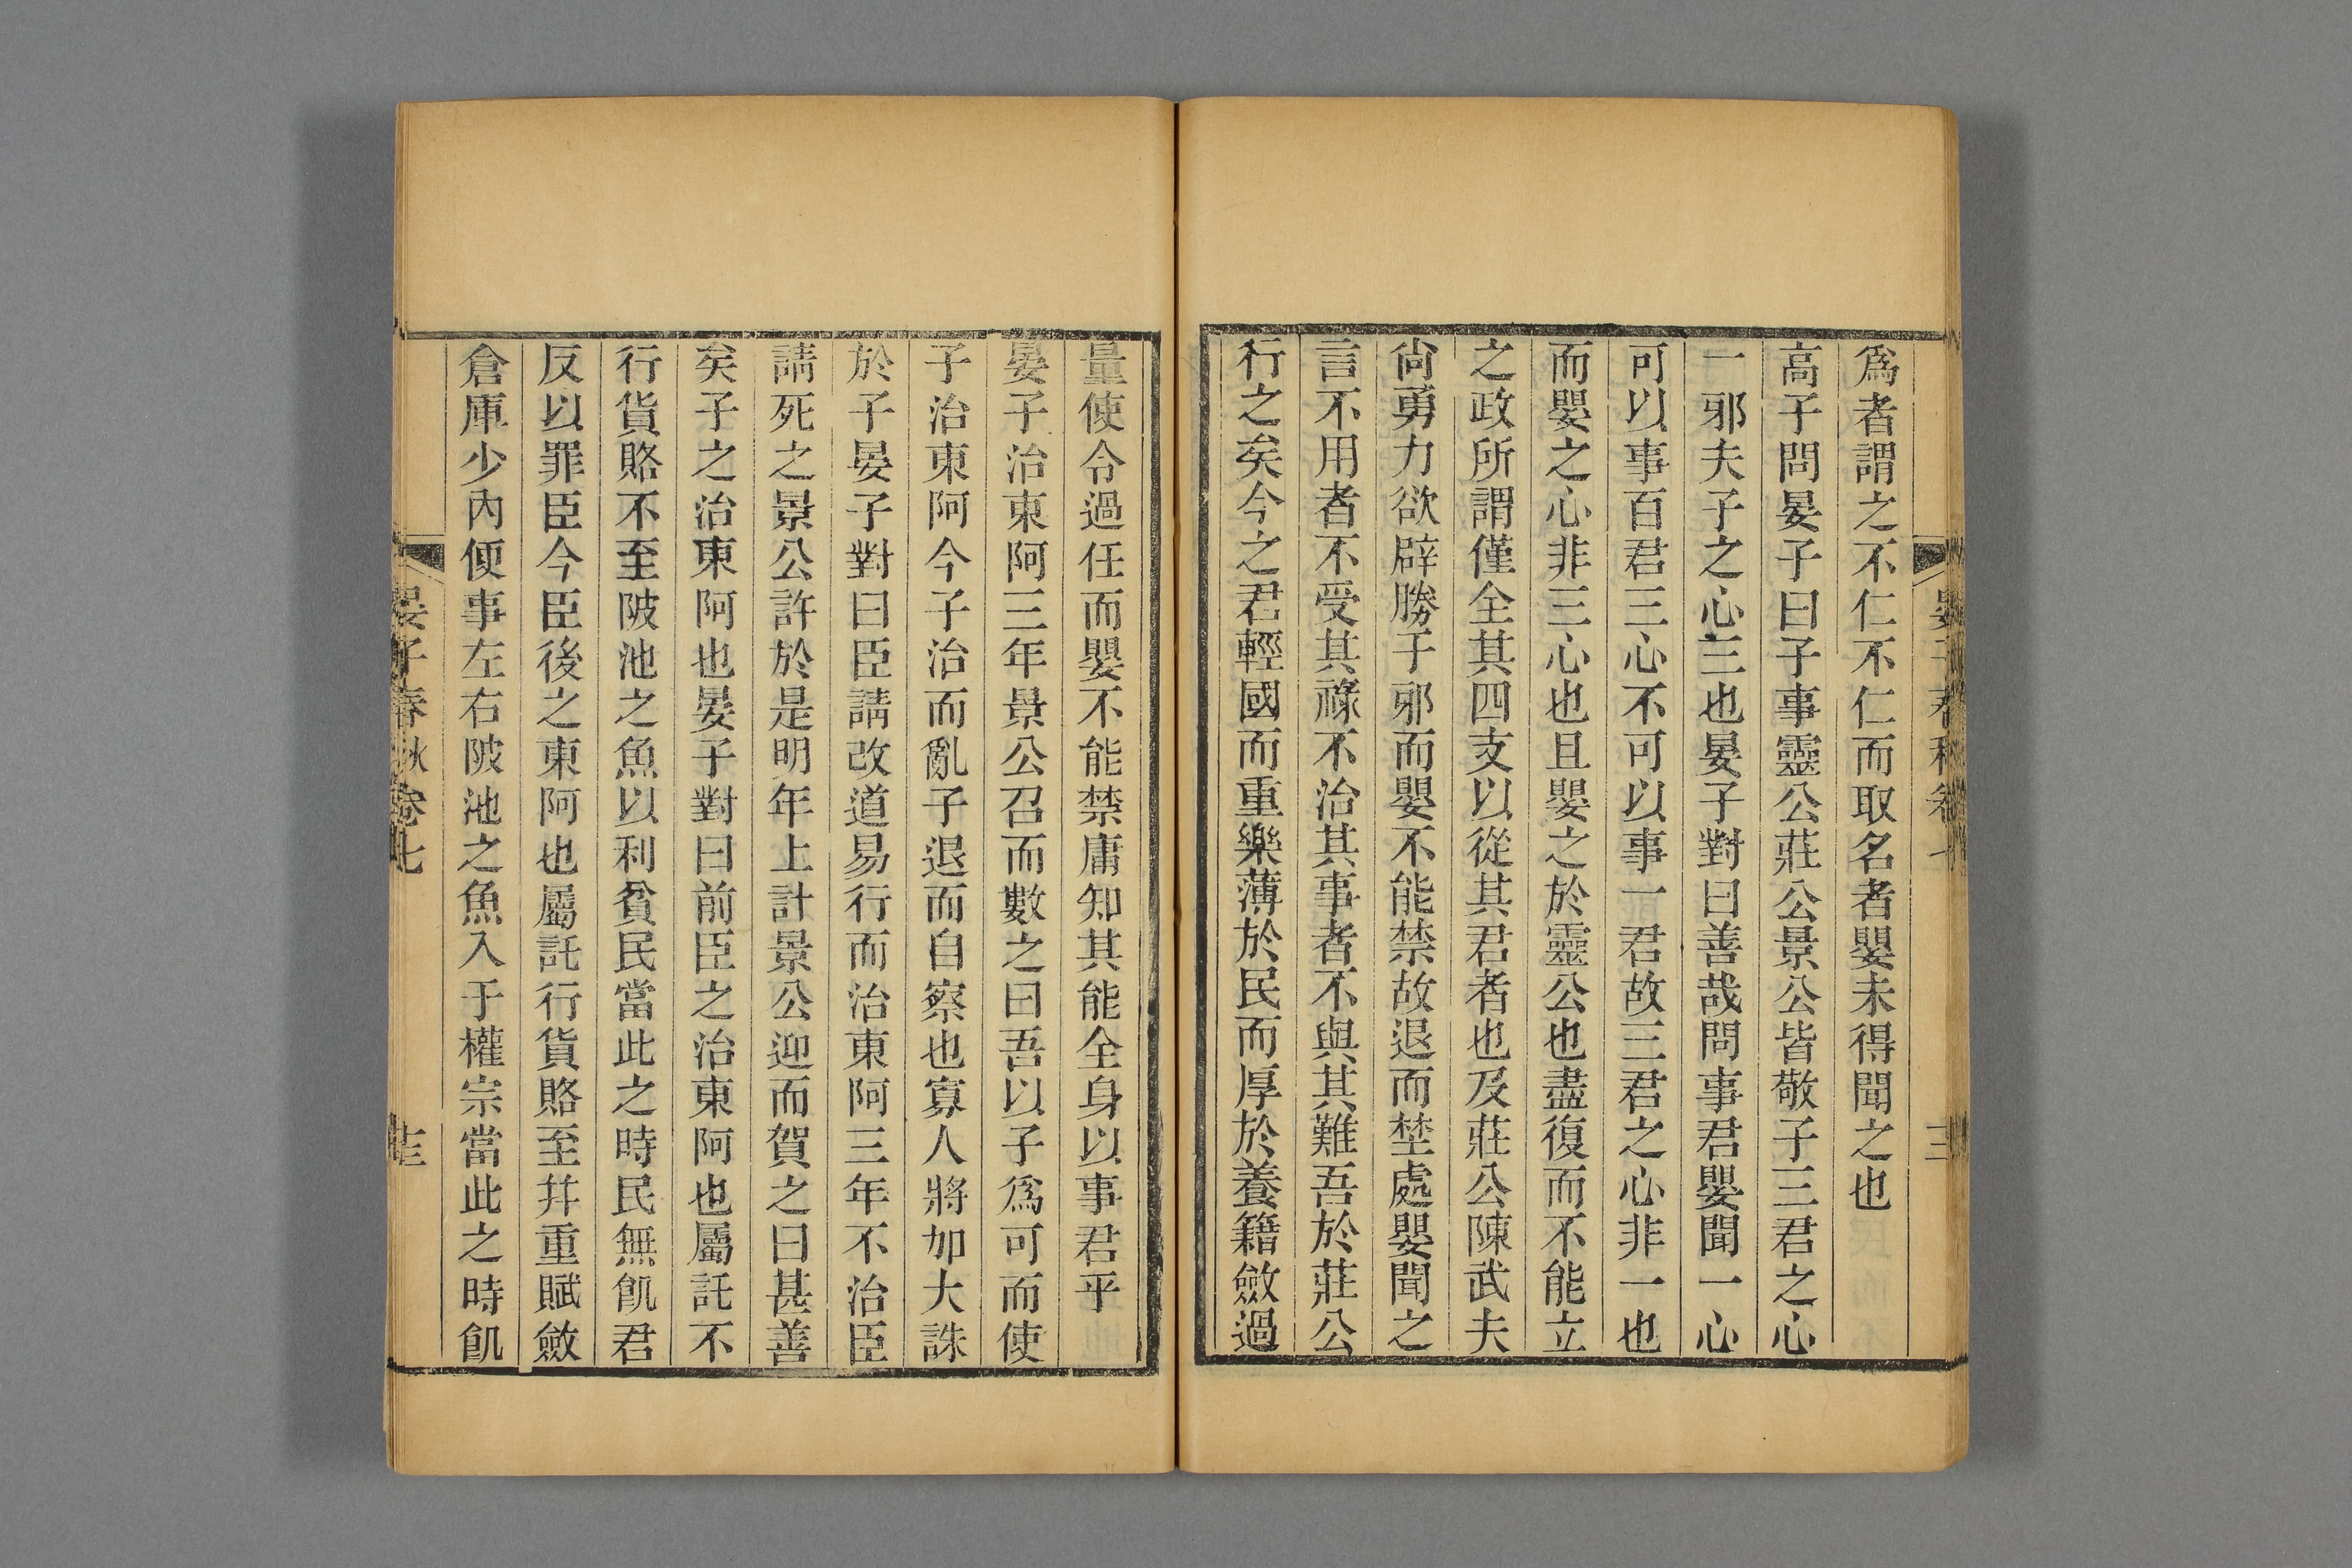 爲者謂之不仁不仁而取名者嬰未得聞之也
高子問晏子曰子事靈公莊公景公皆敬子三君之心
一邪夫子之心三也晏子對曰善哉問事君嬰聞一心
可以事百君三心不可以事一君故三君之心非一也
而嬰之心非三心也且嬰之於靈公也盡復而不能立
之政所謂僅全其四支以從其君者也及莊公陳武夫
尙勇力欲辟勝于邪而嬰不能禁故退而埜處嬰聞之
言不用者不受其祿不治其事者不與其難吾於莊公
行之矣今之君輕國而重樂薄於民而厚於養籍斂過
量使令過任而嬰不能禁庸知其能全身以事君乎
晏子治東阿三年景公召而數之曰吾以子爲可而使
子治東阿今子治而亂子退而自察也寡人將加大誅
於子晏子對曰臣請改道易行而治東阿三年不治臣
請死之景公許於是明年上計景公迎而賀之曰甚善
矣子之治東阿也晏子對曰前臣之治東阿也屬託不
行貨賂不至陂池之魚以利貧民當此之時民無飢君
反以罪臣今臣後之東阿也屬託行貨賂至并重賦斂
倉庫少內便事左右陂池之魚入于權宗當此之時飢
晏子春秋卷七